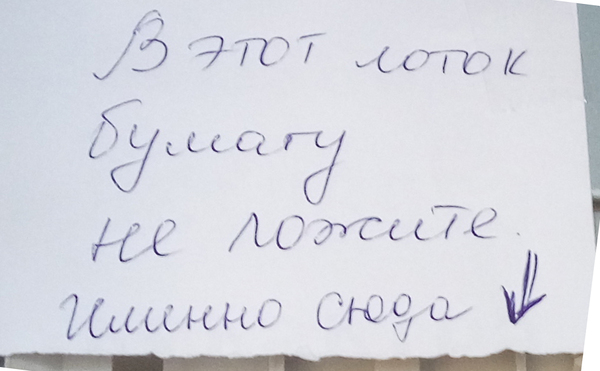 В этот лоток
бумагу
не ложите.
Именно сюда ⇓